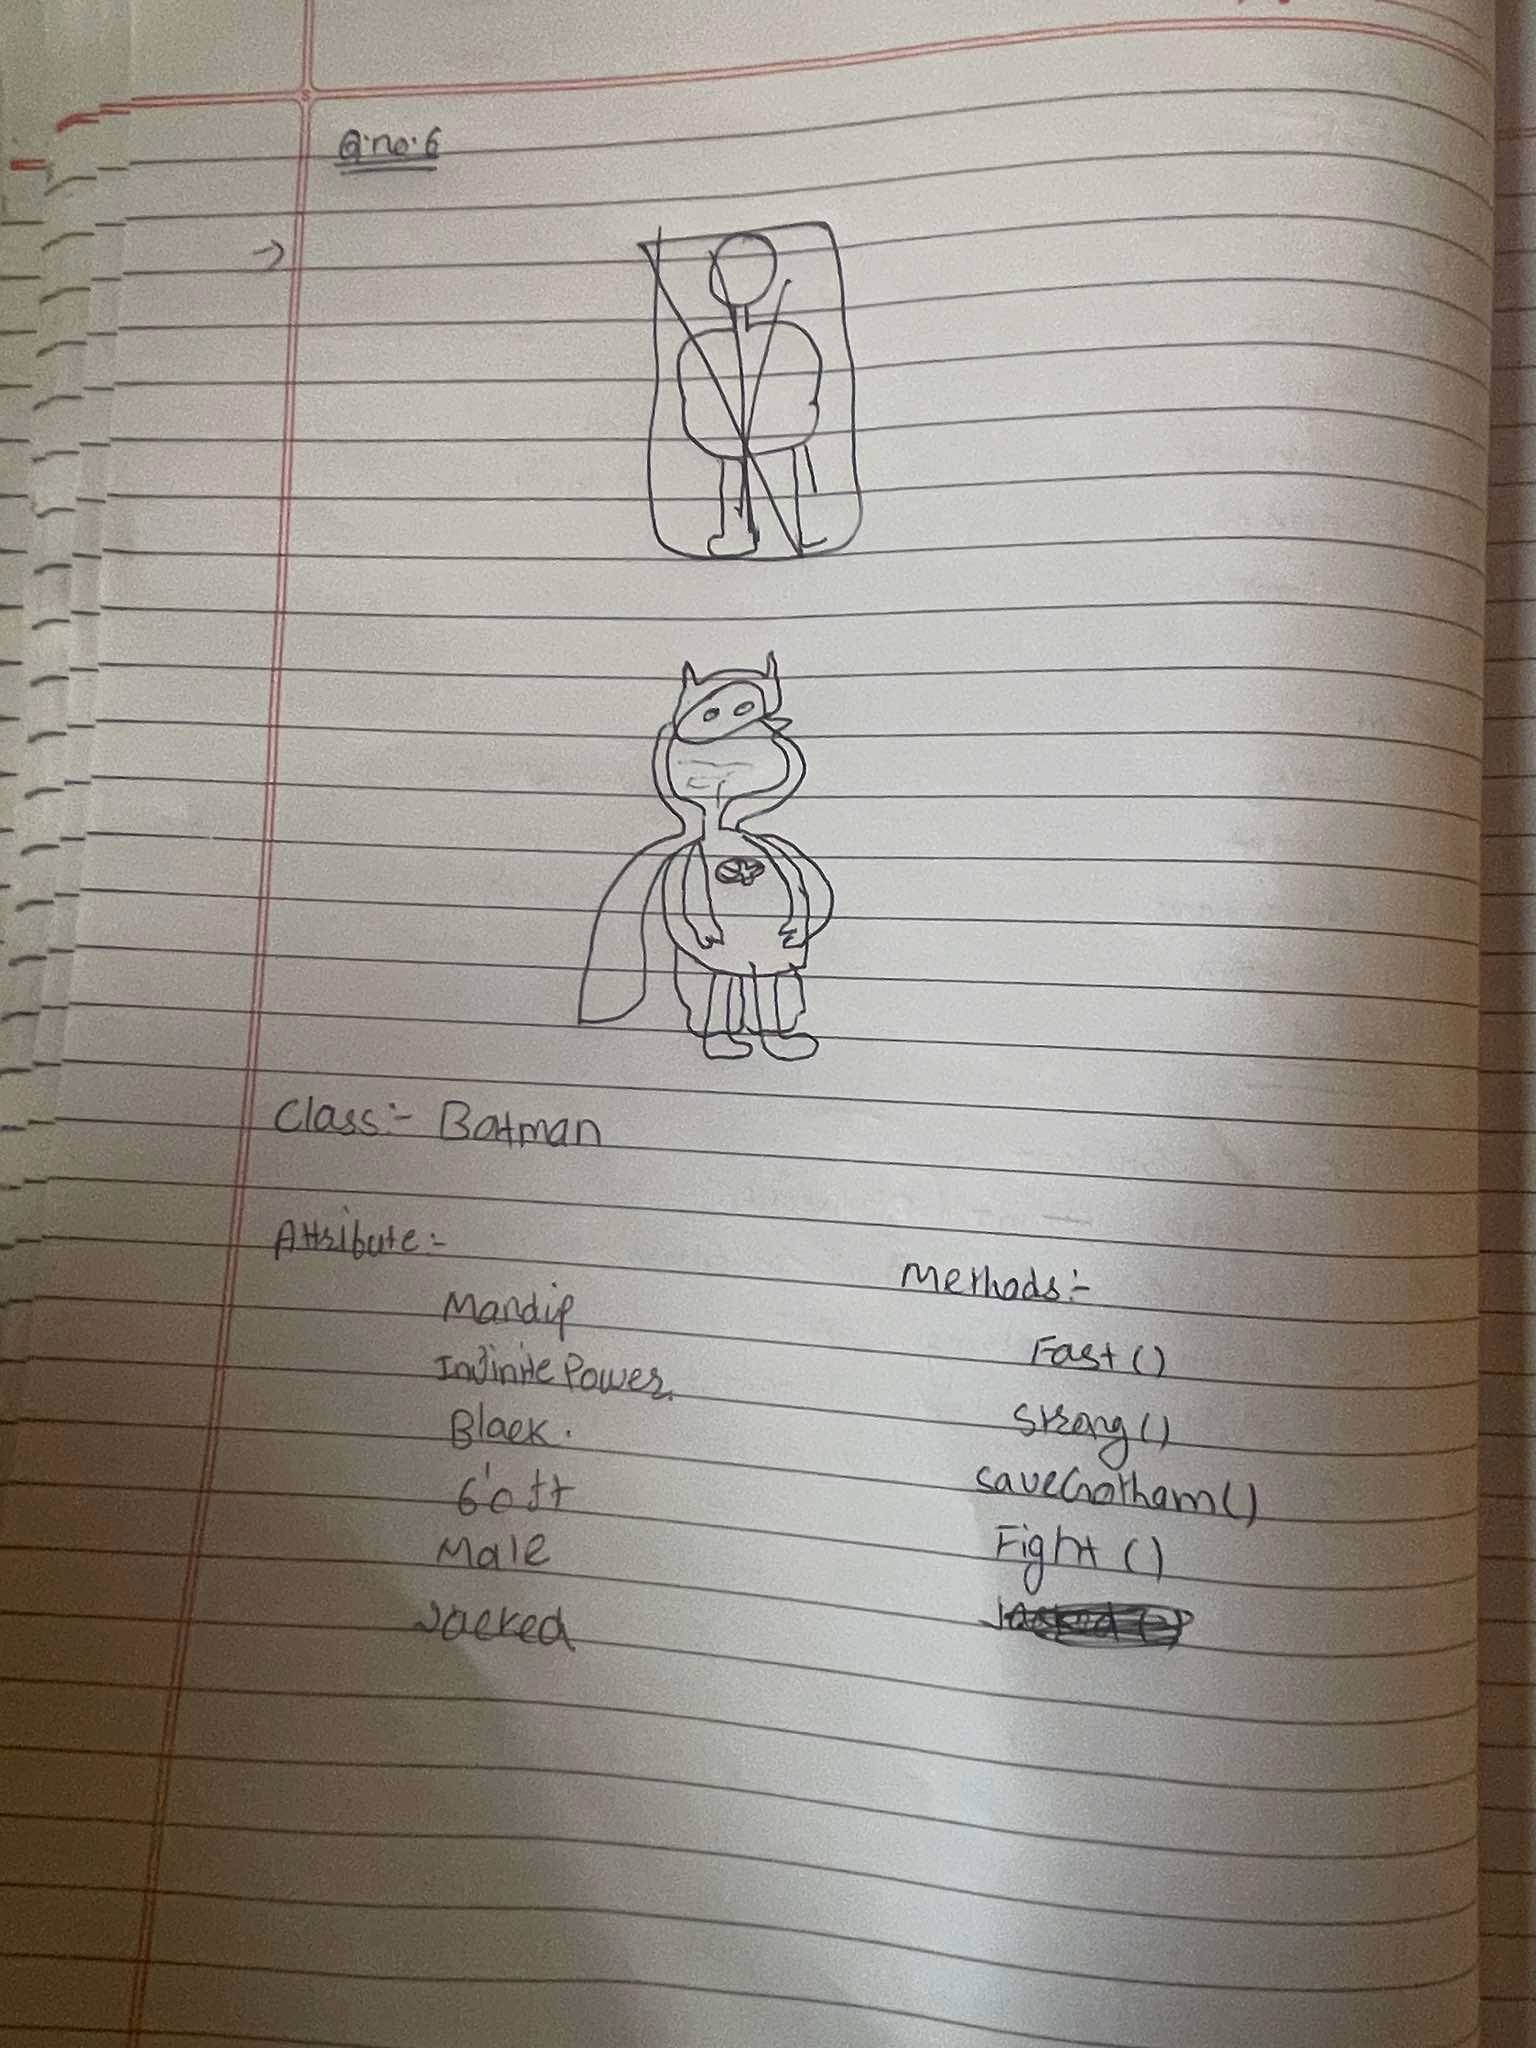 Q.no.6
→
Class:- Batman
Attribute:-
Mandip
Infinite Power.
Black.
6'0 ft
Male
Jacked
Methods:-
Fast ()
Strong ()
SaveGotham ()
Fight ()